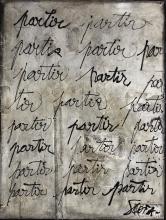 partir partir
partir partir par
partir partir par
partir partir
par
tir partir par
partir partir partir
partir partir partir
partir partir partir
partir partir partir